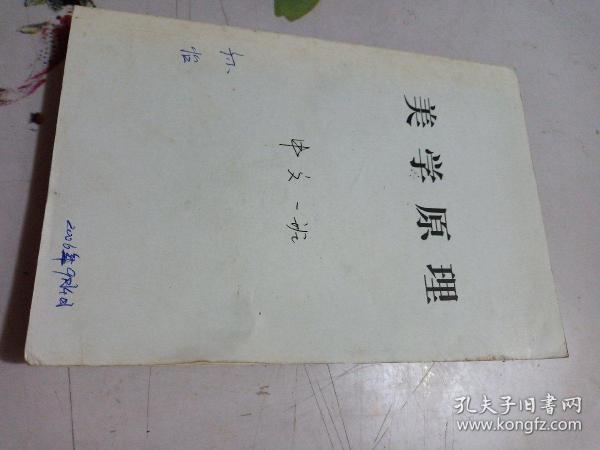 美学原理
中文一班
2006年9月4日
孔夫子旧书网
www.kongfz.com